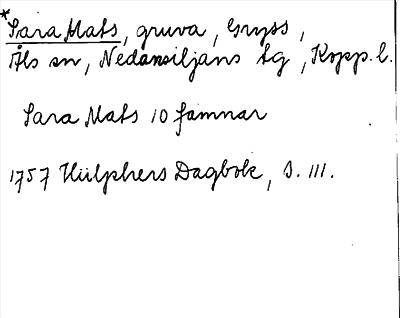 *Sara Mats, gruva, Gryss,
Åls sn, Nedansiljans tg, Kopp. l.
Sara Mats 10 famnar
1757 Hülphers Dagbok, s. 111.